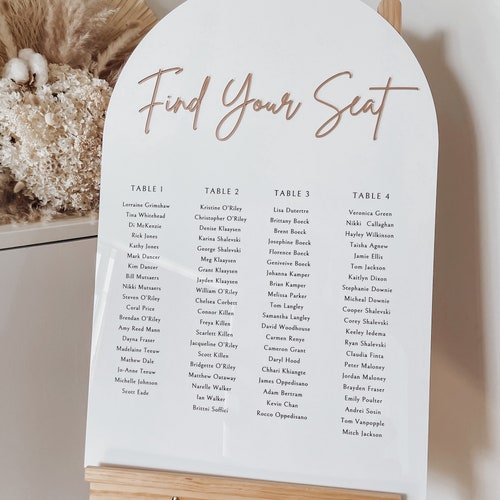 Find Your Seat
TABLE 1
Lorraine Grimshaw
Tina Whitehead
Di McKenzie
Rick Jones
Kathy Jones
Mark Dancer
Kim Dancer
Bill Mutsaers
Nikki Mutsaers
Steven O'Riley
Coral Price
Brendan O'Riley
Amy Reed Mann
Dayna Fraser
Madelaine Teeuw
Mathew Dale
Jo-Anne Teeuw
Michelle Johnson
Scott Eade
TABLE 2
Kristine O'Riley
Christopher O'Riley
Denise Klaaysen
Karina Shalevski
George Shalevski
Meg Klaaysen
Grant Klaaysen
Jayden Klaaysen
William O'Riley
Chelsea Corbett
Connor Killen
Freya Killen
Scarlett Killen
Jacqueline O'Riley
Scott Killen
Bridgette O'Riley
Matthew Oataway
Narelle Walker
Ian Walker
Brittni Soffici
TABLE 3
Lisa Dutertre
Brittany Boeck
Brent Boeck
Josephine Boeck
Florence Boeck
Geniveive Boeck
Johanna Kamper
Brian Kamper
Melissa Parker
Tom Langley
Samantha Langley
David Woodhouse
Carmen Renye
Cameron Grant
Daryl Hood
Chhari Khiangte
James Oppedisano
Adam Bertram
Kevin Chan
Rocco Oppedisano
TABLE 4
Veronica Green
Nikki Callaghan
Hayley Wilkinson
Taisha Agnew
Jamie Ellis
Tom Jackson
Kaitlyn Dixon
Stephanie Downie
Micheal Downie
Cooper Shalevski
Corey Shalevski
Keeley Iedema
Ryan Shalevski
Claudia Finta
Peter Maloney
Jordan Maloney
Brayden Fraser
Emily Poulter
Andrei Sosin
Tom Vanpopple
Mitch Jackson